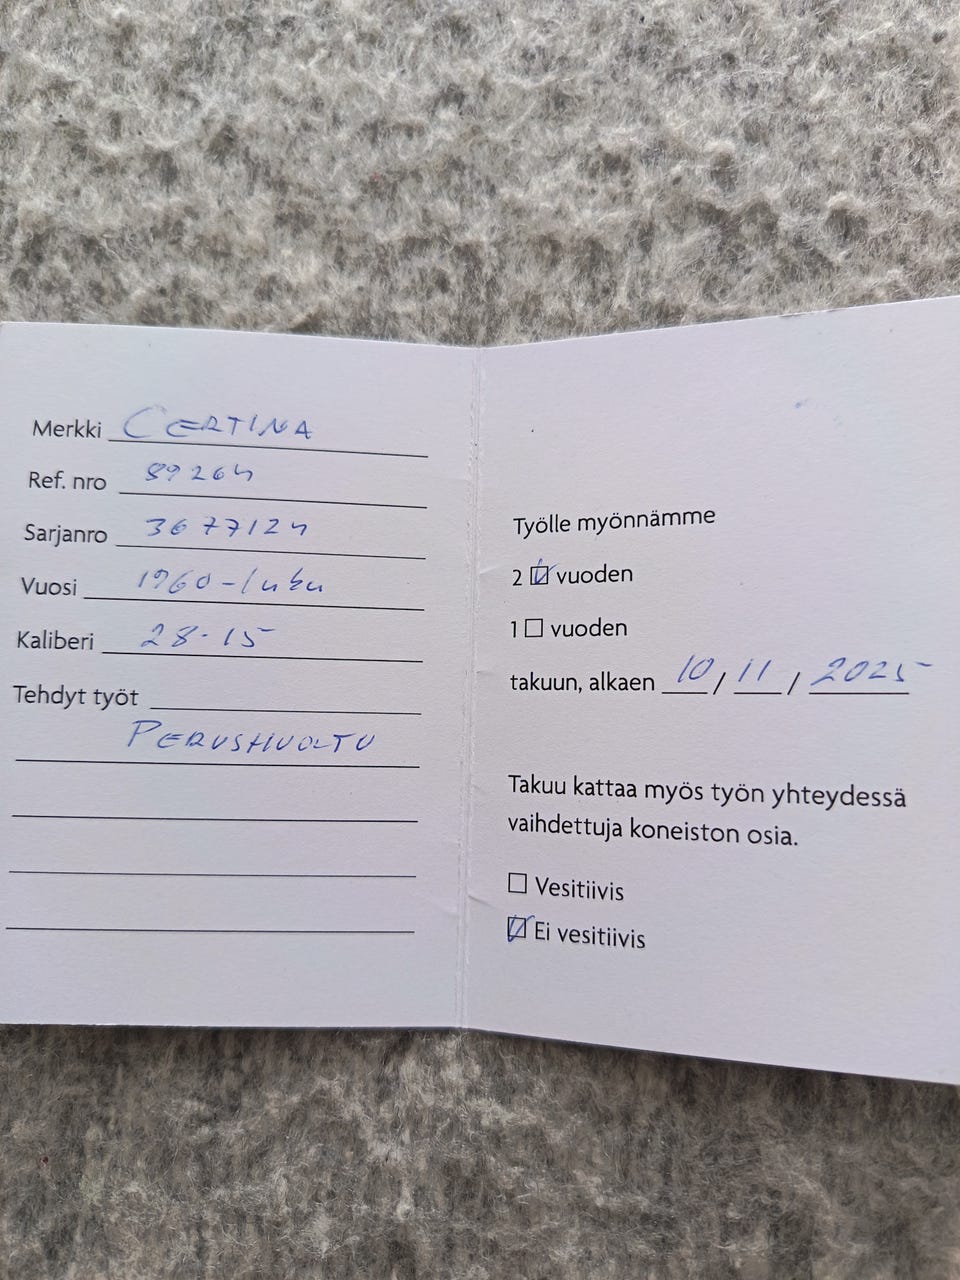 Merkki CERTINA
Ref. nro 89264
Sarjanro 3677124
Vuosi 1960-luku
Kaliberi 28-15
Tehdyt työt
PERUSHUOLTO
Työlle myönnämme
2 ☑ vuoden
1 ☐ vuoden
takuun, alkaen 10 / 11 / 2025
Takuu kattaa myös työn yhteydessä
vaihdettuja koneiston osia.
☐ Vesitiivis
☑ Ei vesitiivis